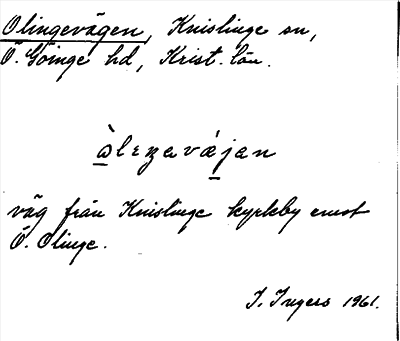 Olingevägen, Knislinge sn,
Ö. Göinge hd, Krist. län.
àlıŋavájan
väg från Knislinge kyrkby emot
Ö. Olinge.
I. Ingers 1961.